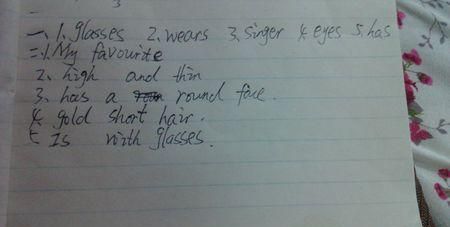 一、1. glasses 2. wears 3. singer 4. eyes 5. has
二、1. My favourite
2. high and thin
3. has a round face.
4. gold short hair.
5 Is with glasses.